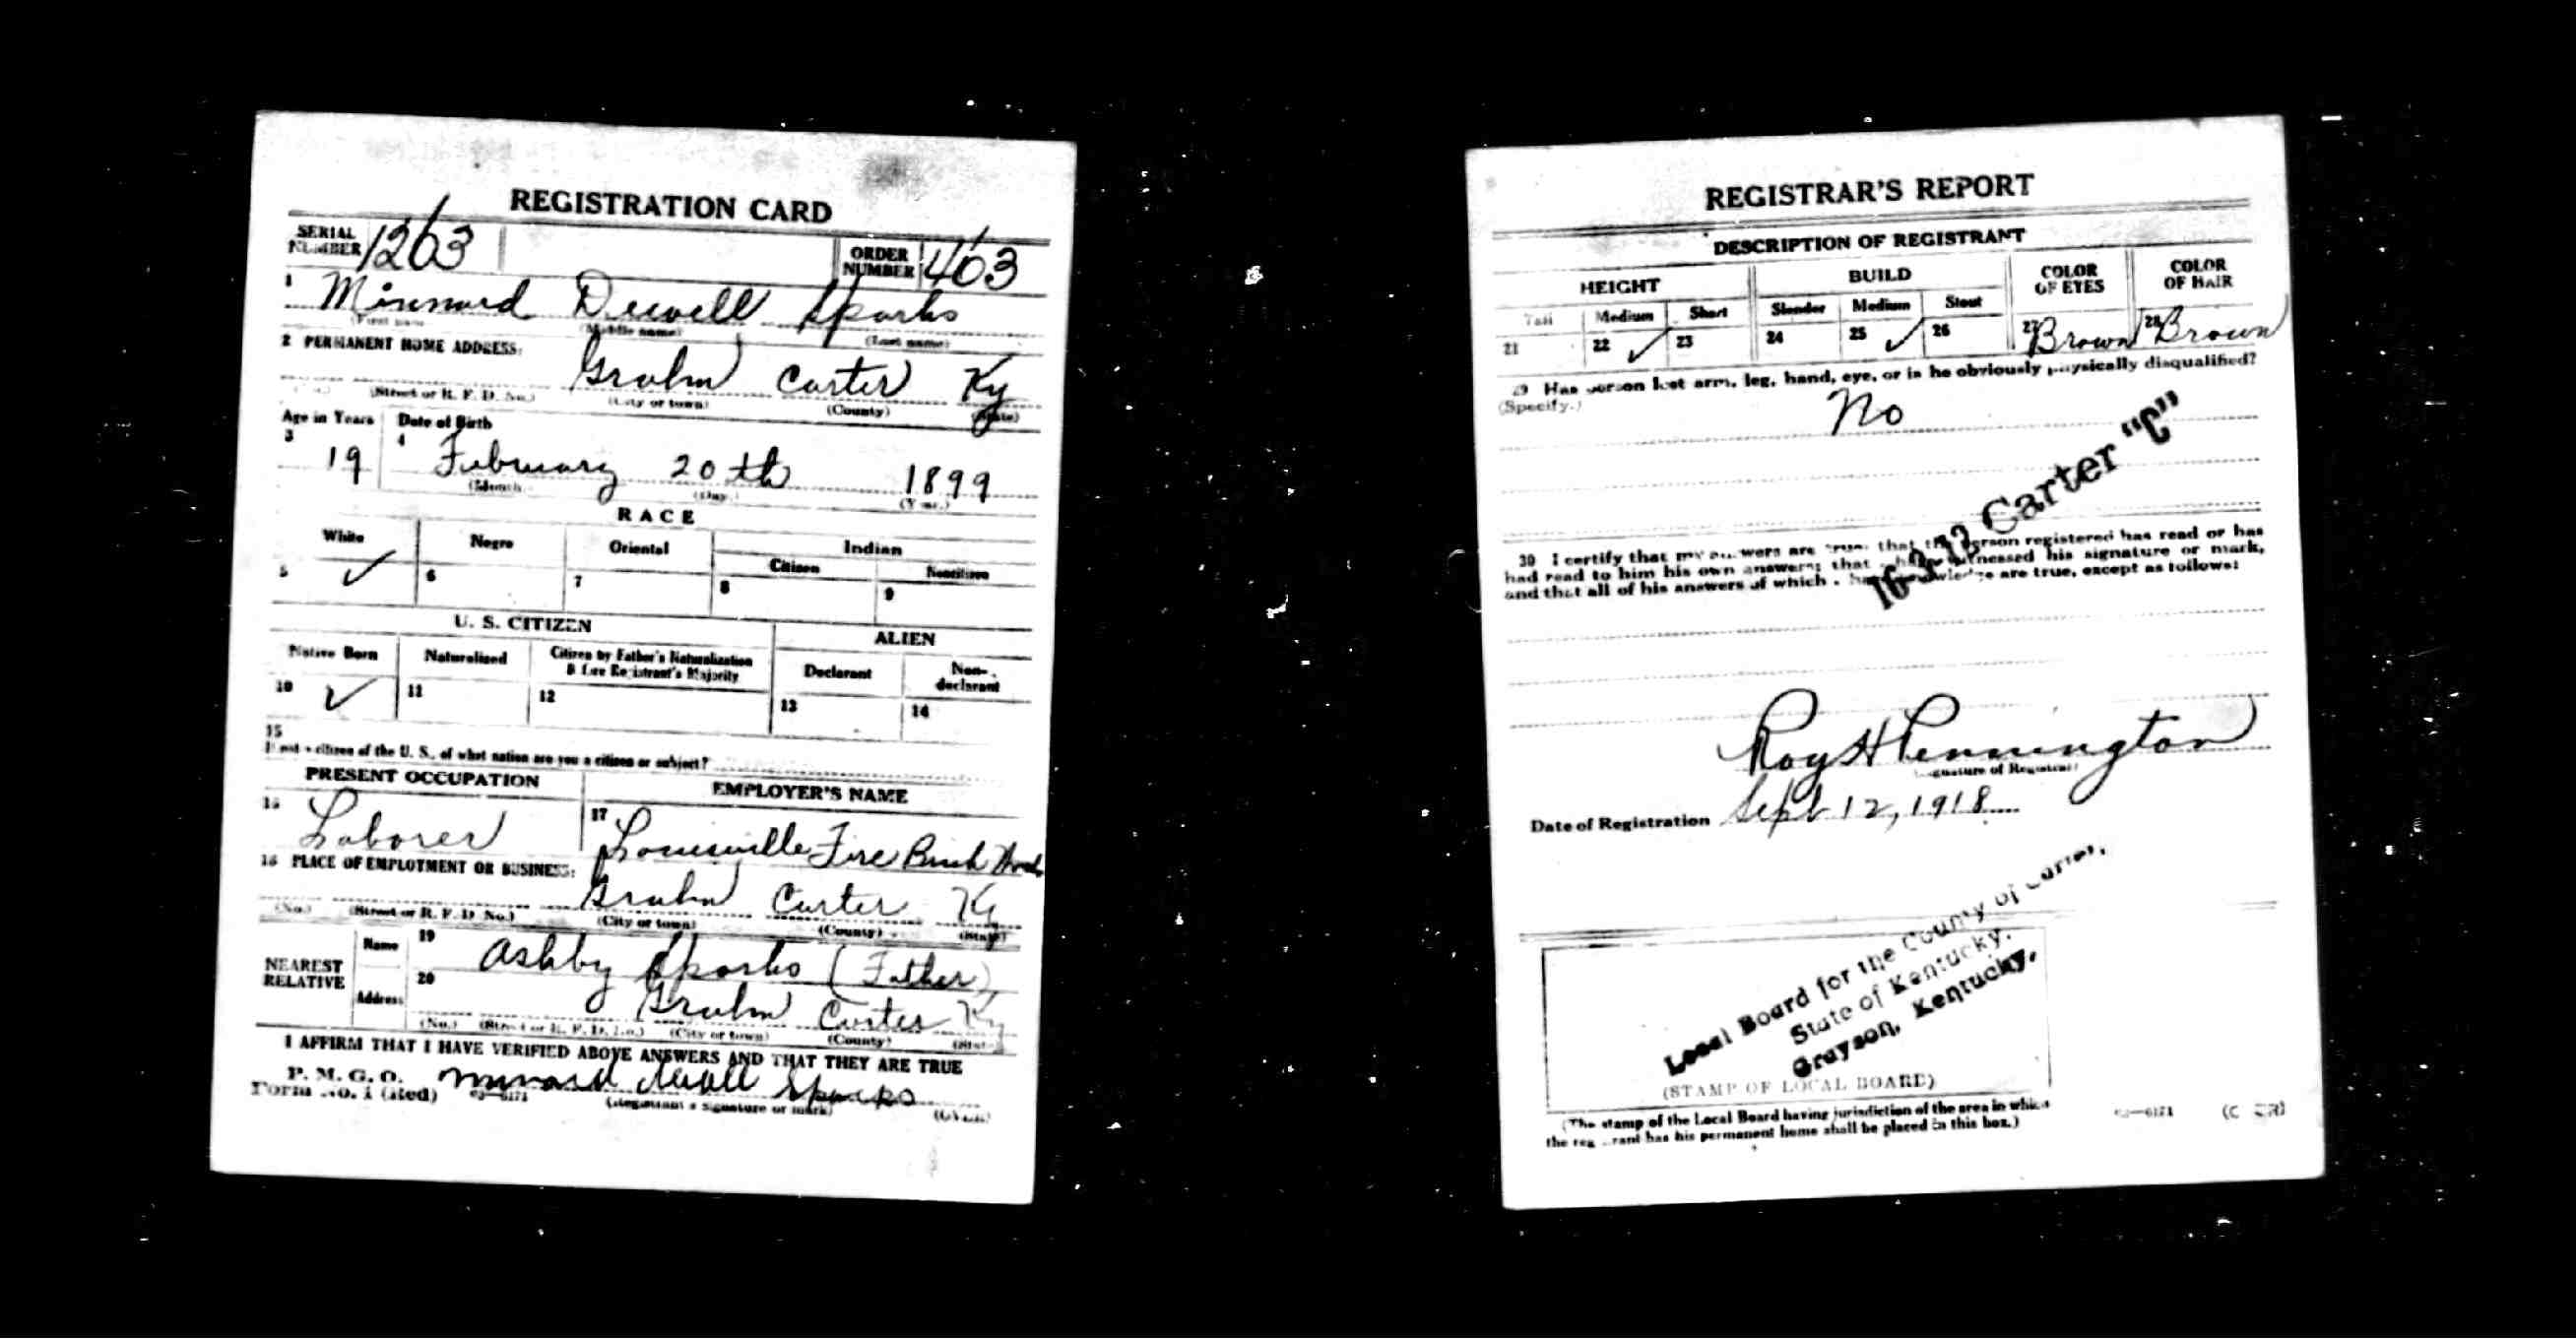 REGISTRATION CARD
SERIAL NUMBER 1263 ORDER NUMBER 403
1 Minnard Dewell Sparks
(First name (Middle name) (Last name)
2 PERMANENT HOME ADDRESS:
Grahn Carter Ky
(Street or R. F. D. No.) (City or town) (County) (State)
Age in Years Date of Birth
3 19 4 February 20th 1899
(Month (Day.) (Year.)
RACE
White Negro Oriental Indian
Citizen Noncitizen
5 ✓ 6 7 8 9
U. S. CITIZEN ALIEN
Native Born Naturalized Citizen by Father's Naturalization Before Registrant's Majority Declarant Non-declarant
10 ✓ 11 12 13 14
15
If not a citizen of the U. S., of what nation are you a citizen or subject?
PRESENT OCCUPATION EMPLOYER'S NAME
16 Laborer 17 Louisville Fire Brick
18 PLACE OF EMPLOYMENT OR BUSINESS:
Grahn Carter Ky
(No.) (Street or R. F. D. No.) (City or town) (County) (State)
NEAREST RELATIVE Name 19 Ashby Sparks (Father)
Address 20 Grahn Carter Ky
(No.) (Street or R. F. D. No.) (City or town) (County) (State)
I AFFIRM THAT I HAVE VERIFIED ABOVE ANSWERS AND THAT THEY ARE TRUE
P. M. G. O.
Form No. 1 (Red) Sparks
(Registrant's signature or mark) (OVER)
REGISTRAR'S REPORT
DESCRIPTION OF REGISTRANT
HEIGHT BUILD COLOR OF EYES COLOR OF HAIR
Tall Medium Short Slender Medium Stout
21 22 ✓ 23 24 25 ✓ 26 27 Brown 28 Brown
29 Has person lost arm, leg, hand, eye, or is he obviously physically disqualified?
(Specify.) No
16-3-12 Carter "C"
30 I certify that my answers are true; that the person registered has read or has
had read to him his own answers; that I have witnessed his signature or mark,
and that all of his answers of which I have knowledge are true, except as follows:
Roy H Pennington
(Signature of Registrar)
Date of Registration Sept 12, 1918
Local Board for the County of Carter,
State of Kentucky.
Grayson, Kentucky.
(STAMP OF LOCAL BOARD)
(The stamp of the Local Board having jurisdiction of the area in which
the registrant has his permanent home shall be placed in this box.)